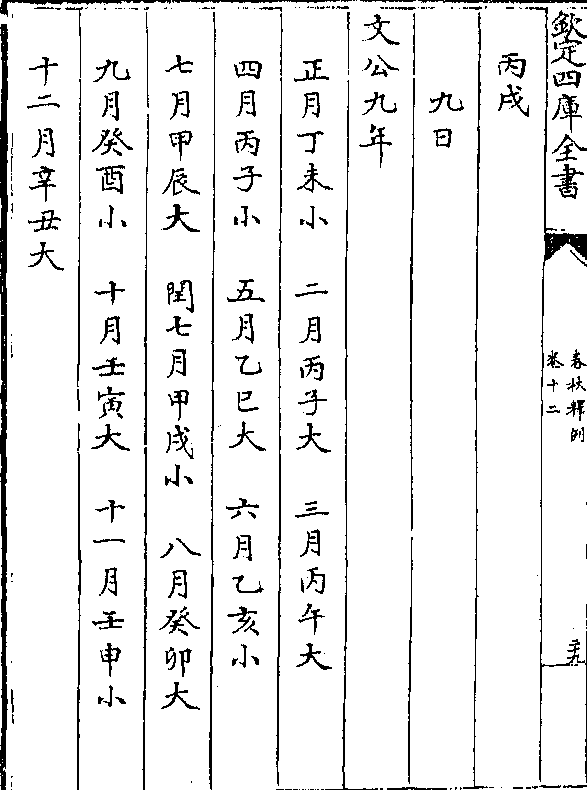 欽定四庫全書
春秋釋例
卷十二
丙戌
九日
文公九年
正月丁未小 二月丙子大 三月丙午大
四月丙子小 五月乙巳大 六月乙亥小
七月甲辰大 閏七月甲戌小 八月癸卯大
九月癸酉小 十月壬寅大 十一月壬申小
十二月辛丑大